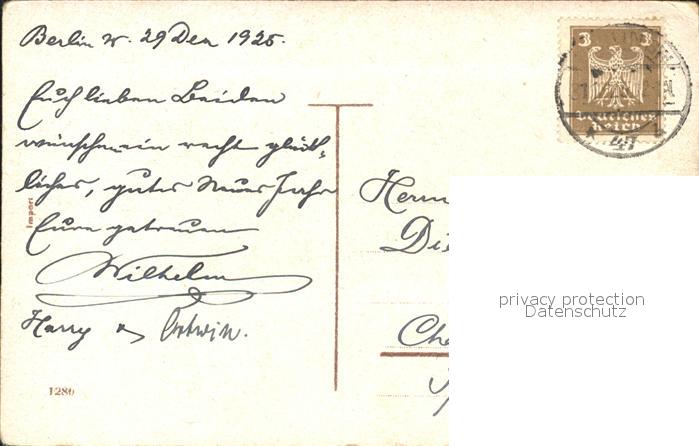 Berlin W. 29 Dez 1925.
Euch lieben Beiden
wünschen ein recht glück-
liches, gutes Neues Jahr
Eure getreuen
Wilhelm
Harry & Ortwin.
Import
1280
3 3
Deutsches
Reich
47
Herrn
Di
Che
privacy protection
Datenschutz